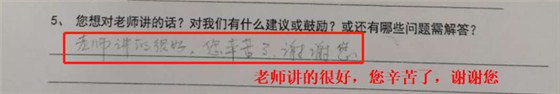 5、您想对老师讲的话？对我们有什么建议或鼓励？或还有哪些问题需解答？
老师讲的很好，您辛苦了，谢谢您
老师讲的很好，您辛苦了，谢谢您